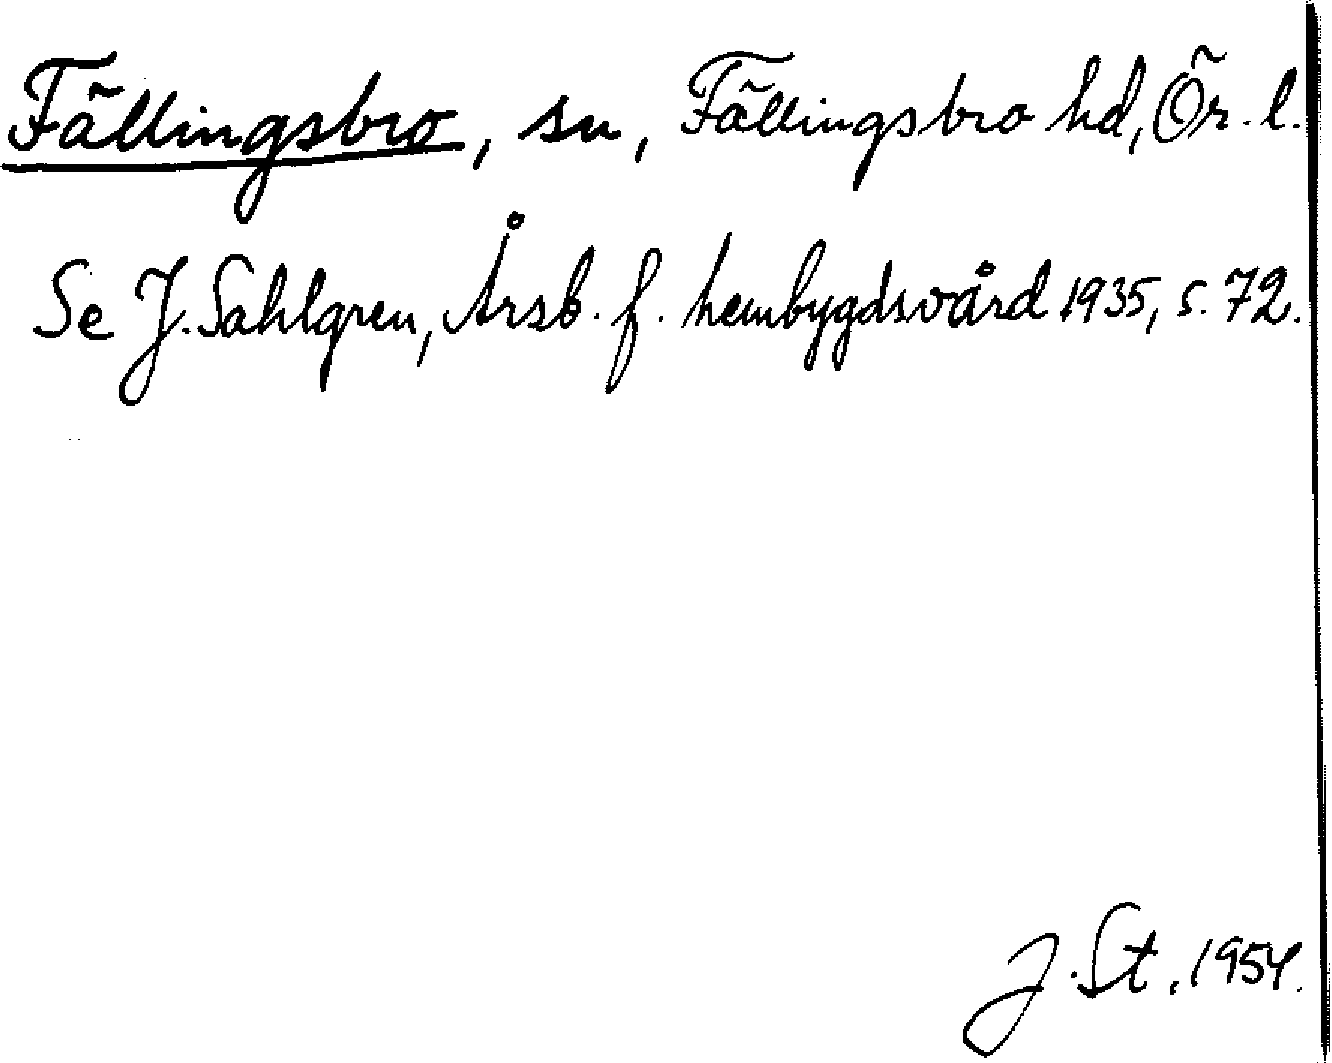 Fällingsbro, sn, Fällingsbro hd, Ör. l.
Se J. Sahlgren, Årsb. f. hembygdsvård 1935, s. 72.
J. St. 1954.